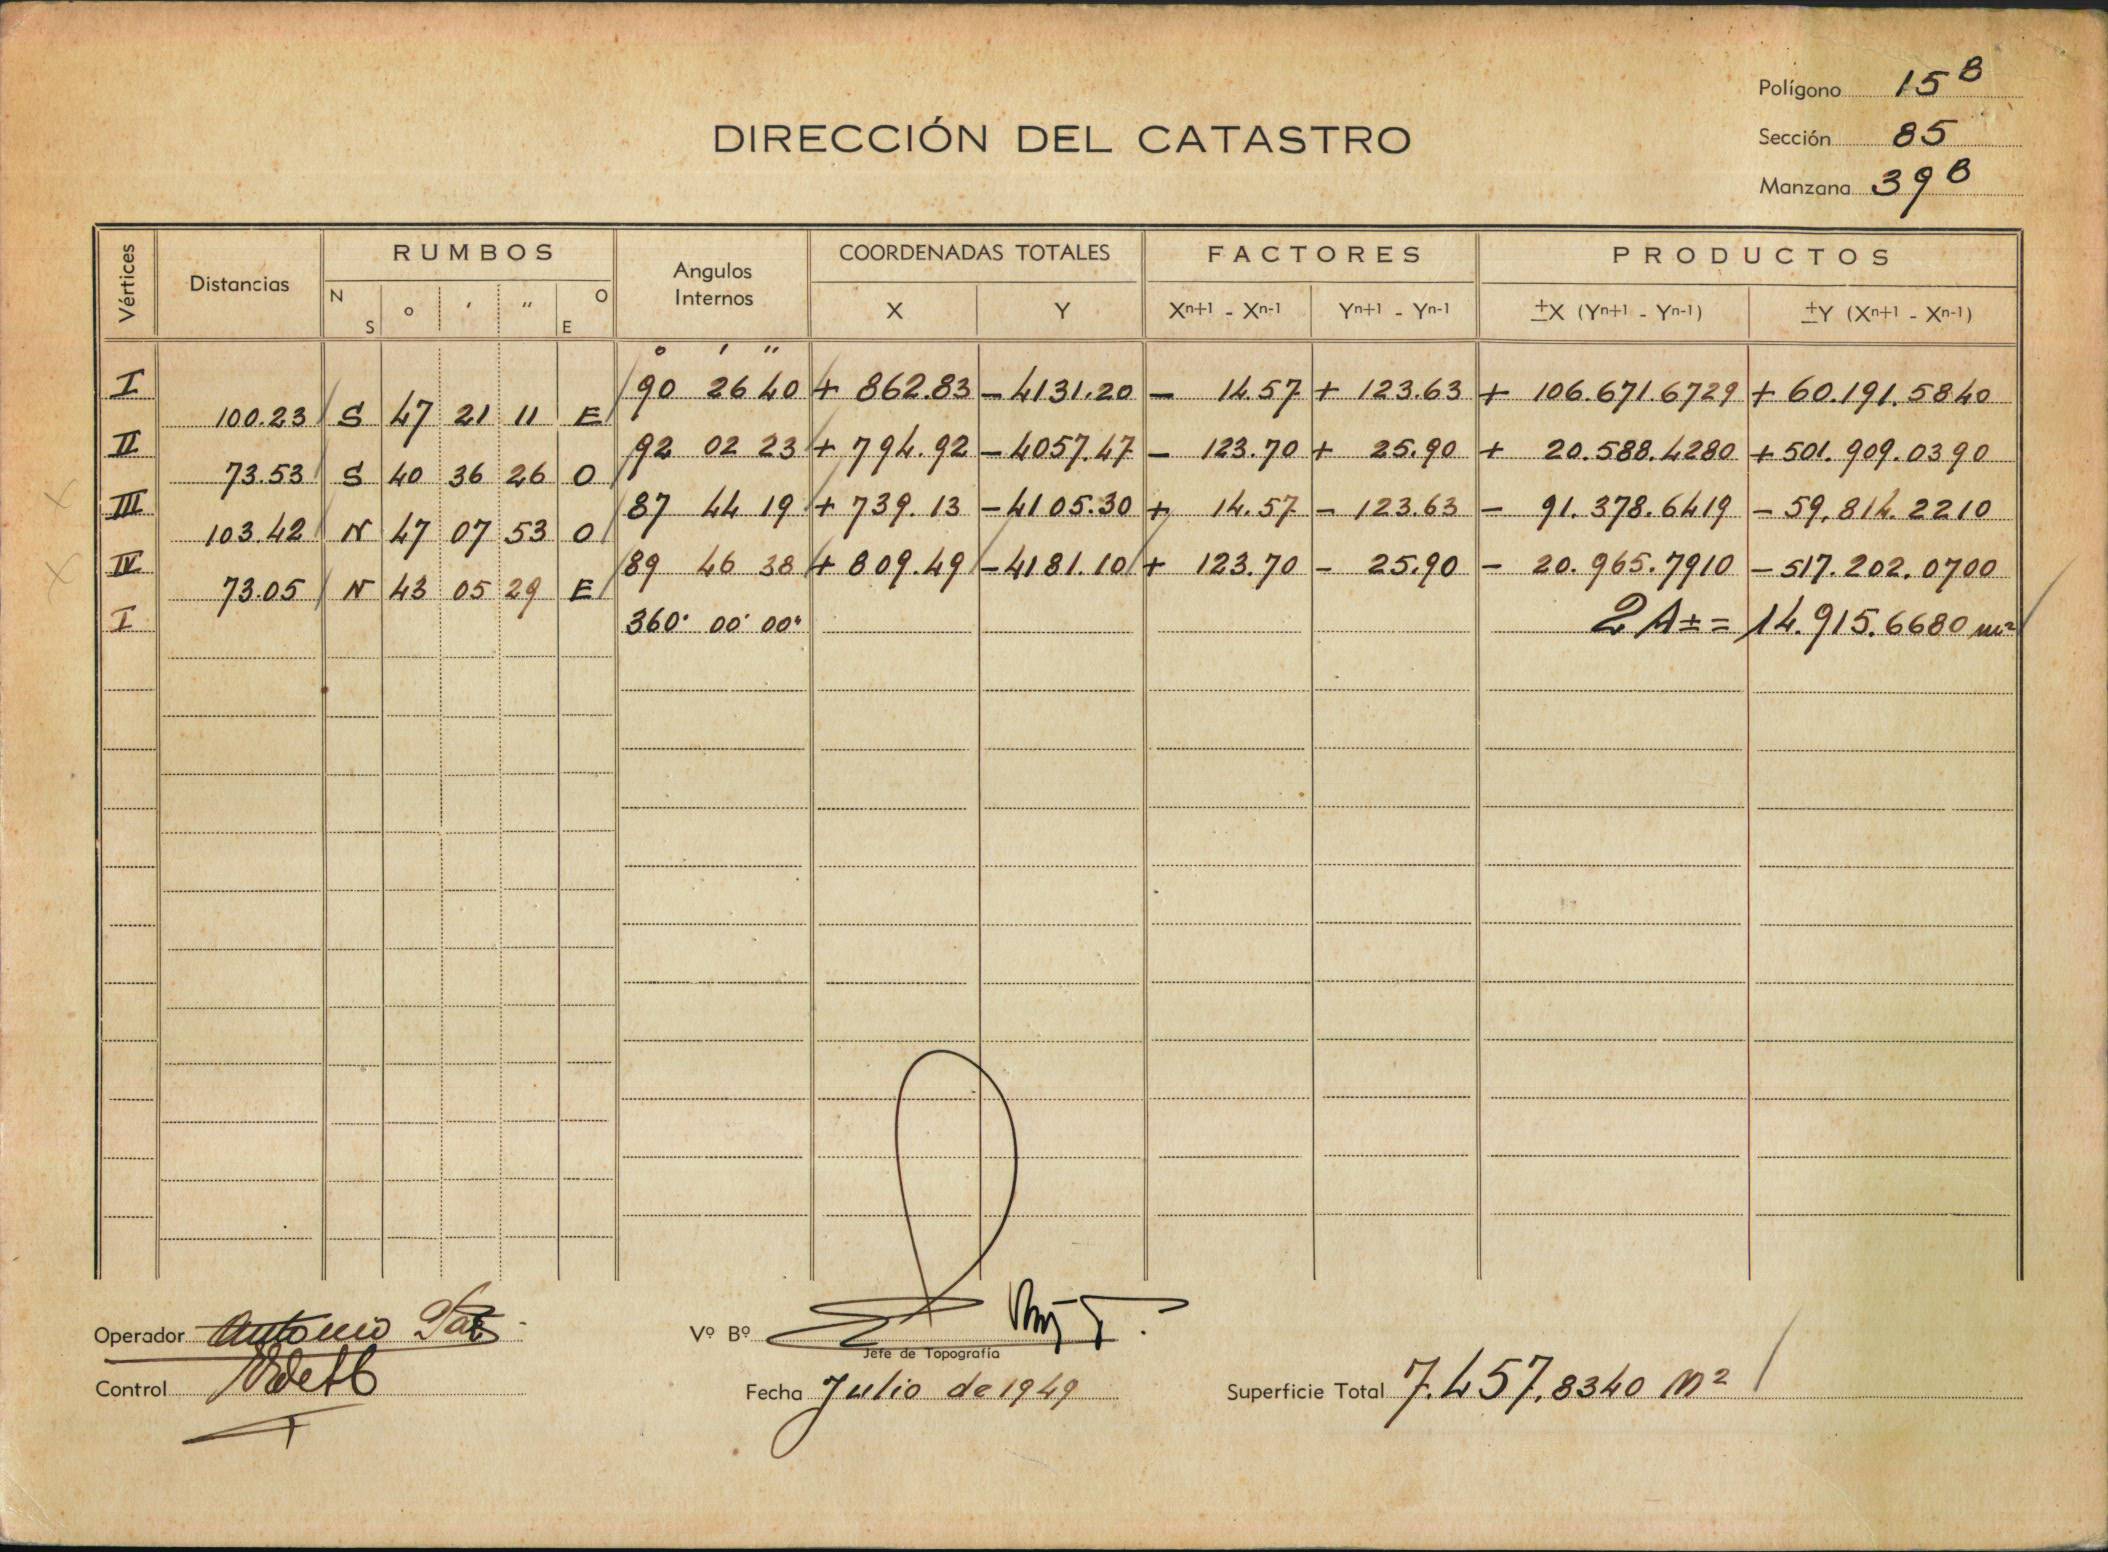 Polígono 15 B
Sección 85
Manzana 39 B
DIRECCIÓN DEL CATASTRO
Vértices Distancias RUMBOS Angulos Internos COORDENADAS TOTALES FACTORES PRODUCTOS
N S ° ' " O E X Y Xn+1 - Xn-1 Yn+1 - Yn-1 ±X (Yn+1 - Yn-1) ±Y (Xn+1 - Xn-1)
° ' "
I 90 26 40 + 862.83 - 4131.20 - 14.57 + 123.63 + 106.671.6729 + 60.191.5840
100.23 S 47 21 11 E
II 92 02 23 + 794.92 - 4057.47 - 123.70 + 25.90 + 20.588.4280 + 501.909.0390
73.53 S 40 36 26 O
III 87 44 19 + 739.13 - 4105.30 + 14.57 - 123.63 - 91.378.6419 - 59.814.2210
103.42 N 47 07 53 O
IV 89 46 38 + 809.49 - 4181.10 + 123.70 - 25.90 - 20.965.7910 - 517.202.0700
73.05 N 43 05 29 E
I 360° 00' 00" 2A± = 14.915.6680 m²
Operador Antonio
Vº Bº
Jefe de Topografía
Control
Fecha Julio de 1949
Superficie Total 7.457.8340 m²